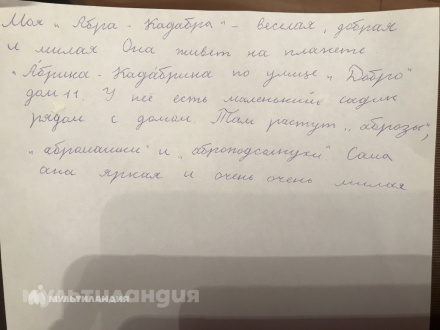 Моя „Абра - Кадабра" - веселая, добрая
и милая Она живет на планете
„Абрика - Кадабрика по улице „Добро"
дом 11 У неё есть маленький садик
рядом с домом Там растут „аброзы",
„абромашки" и „аброподсолнухи" Сама
она яркая и очень очень милая
МУЛЬТИЛАНДИЯ